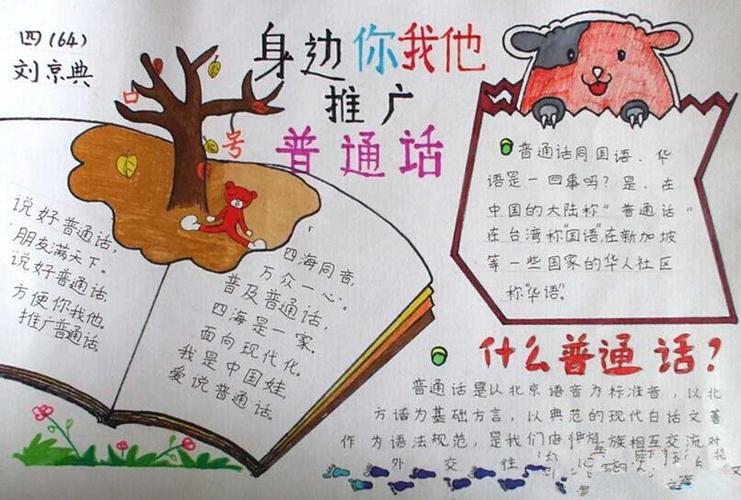 四(64)
刘京典
身边你我他
推广
普通话
口
号
说好普通话,
朋友满天下。
说好普通话,
方便你我他。
推广普通话,
四海同音,
万众一心。
普及普通话,
四海是一家.
面向现代化.
我是中国娃,
爱说普通话。
普通话同国语、华
语是一回事吗? 是, 在
中国的大陆称"普通话"
在台湾称"国语",在新加坡
等一些国家的华人社区
称"华语"。
什么普通话?
普通话是以北京语音为标准音,以北
方话为基础方言,以典范的现代白话文著
作为语法规范,是我们
族相互交流
外交